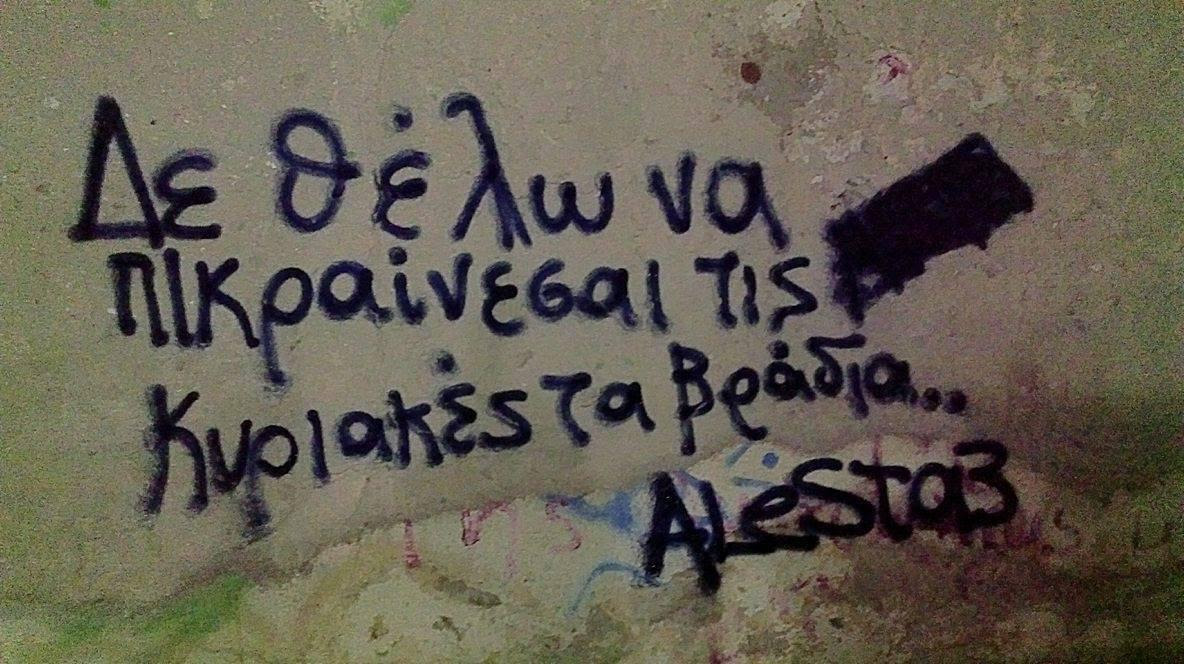 Δε θέλω να
πικραίνεσαι τις
Κυριακές τα βράδια...
ALesta3